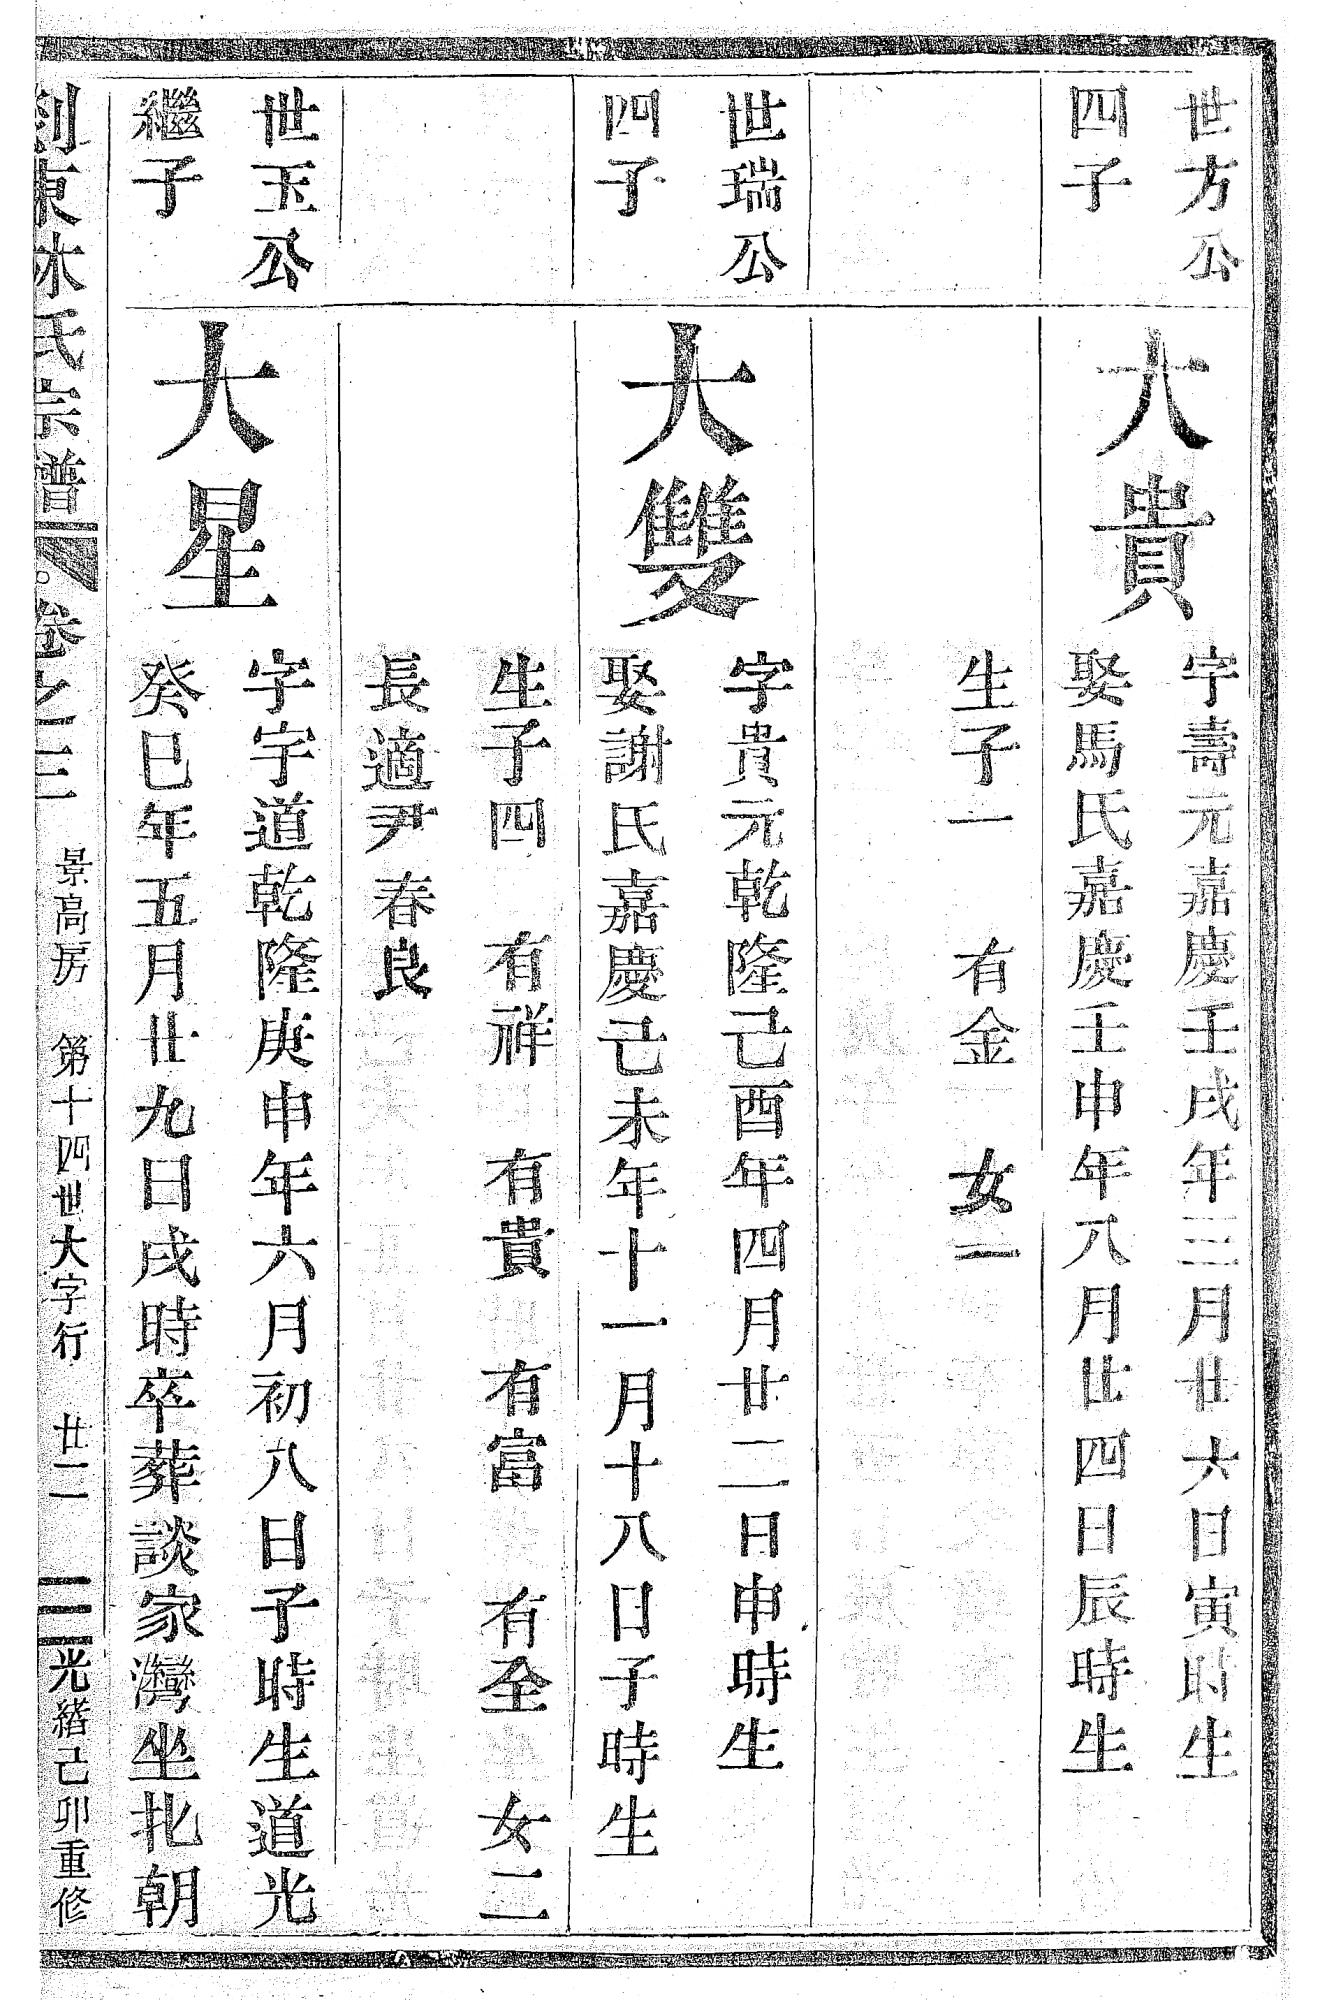 世方公
四子
大貴
字壽元嘉慶壬戌年三月廿六日寅時生
娶馬氏嘉慶壬申年八月廿四日辰時生
生子一 有金 女一
世瑞公
四子
大雙
字貴元乾隆己酉年四月廿二日申時生
娶謝氏嘉慶己未年十一月十八日子時生
生子四 有祥 有貴 有富 有全 女二
長適尹春良
世玉公
繼子
大星
字宇道乾隆庚申年六月初八日子時生道光
癸巳年五月廿九日戌時卒葬談家灣坐北朝
東林氏宗譜 卷之三 景高房 第十四世大字行 廿二 光緒己卯重修